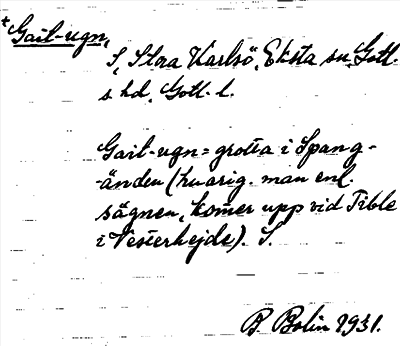 +Gail-ugn,
S, Stora Karlsö, Eksta sn, Gotl.
s hd, Gotl. l.
Gail-ugn = grotta i Spang-
-änden (huarig. man enl.
sägnen, komer upp vid Tible
i Vesterhejde). S.
B Bolin 1931.